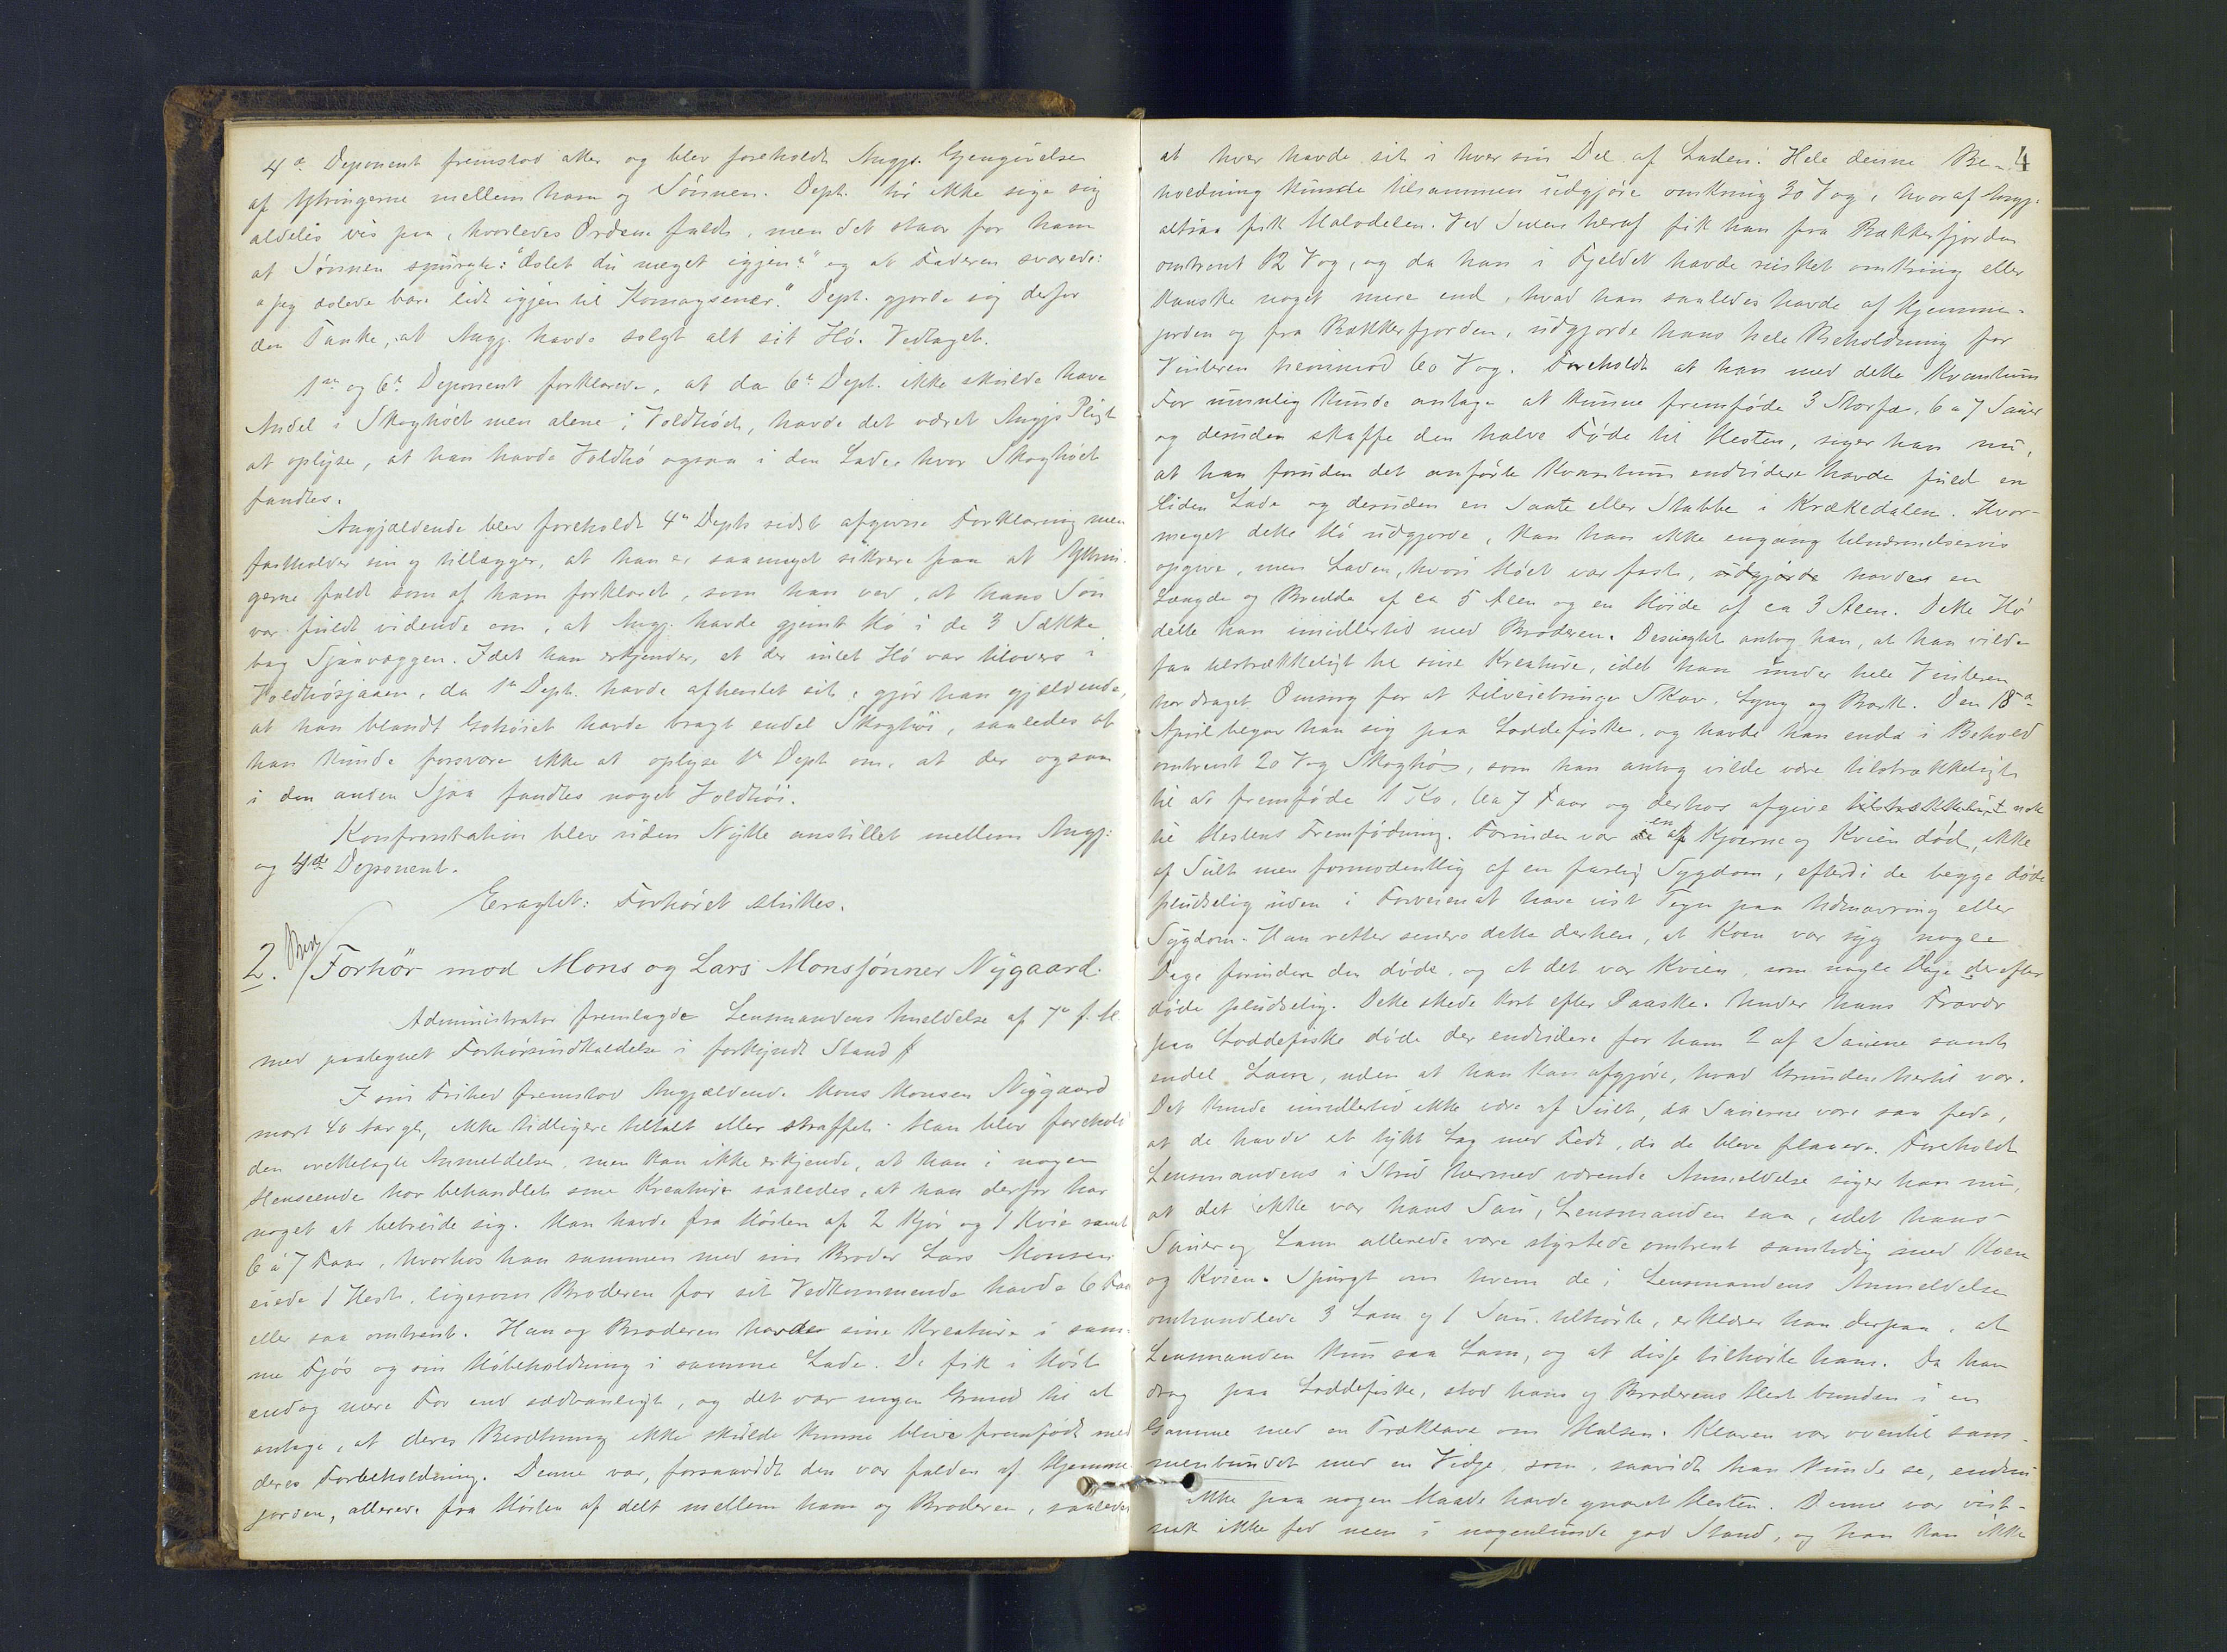 4de Deponent fremstod atter og blev foreholdt Angjs. Gjengivelse
af Ytringerne mellem ham og Sønnen. Dept. tør ikke sige sig
aldeles vis paa, hvorledes Ordene faldt, men det staar for ham
at Sønnen spurgte: "Aslet du meget igjen?" og at Faderen svarede:
"jeg aslede bare lidt igjen til Komagsener." Dept. gjorde sig derfor
den Tanke, at Angj. havde solgt alt sit Hø. Vedtaget.
1ste og 6te Deponent forklarede, at da 6te Dept. ikke skulde have
Andel i Skoghøet men alene i Voldhøet, havde det været Angjs Pligt
at oplyse, at han havde Voldhø ogsaa i den Lade hvor Skoghøet
fandtes.
Angjældende blev foreholdt 4de Depts sidst afgivne Forklaring men
fastholder sin og tillægger, at han er saameget sikrere paa at Ytrin-
gerne faldt som af ham forklaret, som han ved, at hans Søn
var fuldt vidende om, at Angj. havde gjemt Hø i de 3 Sække
bag Sjaavæggen. Idet han erkjender, at der intet Hø var tilovers i
Voldhøsjaaen, da 1ste Dept. havde afhentet sit, gjør han gjældende,
at han blandt Gohøiet havde bragt endel Skoghøi, saaledes at
han kunde forsvare ikke at oplyse 1ste Dept om, at der ogsaa
i den anden Sjaa fandtes noget Voldhøi.
Konfrontation blev uden Nytte anstillet mellem Angj:
og 4de Deponent.
Eragtet: Forhøret sluttes.
2. Forhør mod Mons og Lars Monssønner Nygaard.
Administrator fremlagde Lensmandens Anmeldelse af 7de f. M.
med paategnet Forhørsindkaldelse i forkyndt Stand
I sin Frihed fremstod Angjældende Mons Monsen Nygaard
snart 40 Aar gl, ikke tidligere tiltalt eller straffet. Han blev foreholdt
den irettelagte Anmeldelse, men kan ikke erkjende, at han i nogen
Henseende har behandlet sine Kreature saaledes, at han derfor har
noget at bebreide sig. Han havde fra Høsten af 2 Kjør og 1 Kvie samt
6 à 7 Faar, hvorhos han sammen med sin Broder Lars Monsen
eiede 1 Hest, ligesom Broderen for sit Vedkommende havde 6 Faar
eller saa omtrent. Han og Broderen havde sine Kreature i sam-
me Fjøs og sin Høbeholdning i samme Lade. De fik i Høst
endog mere For end sædvanligt, og det var ingen Grund til at
antage, at deres Besætning ikke skulde kunne blive fremfødt med
deres Forbeholdning. Denne var, forsaavidt den var falden af Hjemme-
jorden, allerede fra Høsten af delt mellem ham og Broderen, saaledes
4
at hver havde sit i hver sin Del af Laden. Hele denne Be-
holdning kunde tilsammen udgjøre omkring 30 Vog, hvoraf Angj.
altsaa fik Halvdelen. Ved Siden heraf fik han fra Bækkerfjorden
omtrent 12 Vog, og da han i Fjeldet havde risket omkring eller
kanske noget mere end, hvad han saaledes havde af Hjemme-
jorden og fra Bækkerfjorden, udgjorde hans hele Beholdning for
Vinteren henimod 60 Vog. Foreholdt at han med dette Kvantum
For umulig kunde antage at kunne fremføde 3 Storfæ, 6 a 7 Sauer
og desuden skaffe den halve Føde til Hesten, siger han nu,
at han foruden det anførte Kvantum endvidere havde fuld en
liden Lade og desuden en Saate eller Stabbe i Krækedalen. Hvor-
meget dette Hø udgjorde, kan han ikke engang tilnærmelsesvis
opgive, men Laden, hvori Høet var fast, udgjorde havde en
Længde og Bredde af ca 5 Alen og en Høide af ca 3 Alen. Dette Hø
delte han imidlertid med Broderen. Desuagtet antog han, at han vilde
faa tilstrækkeligt til sine Kreature, idet han under hele Vinteren
har draget Omsorg for at tilveiebringe Skav, Lyng og Bark. Den 18de
April begav han sig paa Loddefiske, og havde han enda i Behold
omtrent 20 Vog Skoghø, som han antog vilde være tilstrækkeligt
til at fremføde 1 Ko, 6 a 7 Faar og derhos afgive tilstrækkeligt nok
til Hestens Fremfødning. Forinden var en af Kjøerne og Kvien død, ikke
af Sult men formodentlig af en farlig Sygdom, efterdi de begge døde
pludselig uden i Forveien at have vist Tegn paa Udmavring eller
Sygdom. Han retter senere dette derhen, at Koen var syg nogle
Dage forinden den døde, og at det var Kvien, som nogle Dage derefter
døde pludselig. Dette skede kort efter Paaske. Under hans Fravær
paa Loddefiske døde der endvidere for ham 2 af Sauene samt
endel Lam, uden at han kan afgjøre, hvad Grunden hertil var.
Det kunde imidlertid ikke være af Sult, da Sauerne vare saa fede,
at de havde et tykt Lag med Fedt, da de bleve flaaede. Foreholdt
Lensmandens i Strid hermed værende Anmeldelse siger han nu,
at det ikke var hans Sau, Lensmanden saa, idet hans
Sauer og Lam allerede vare styrtede omtrent samtidig med Koen
og Kvien. Spurgt om hvem de i Lensmandens Anmeldelse
omhandlede 3 Lam og 1 Sau tilhørte, erklærer han derpaa, at
Lensmanden kun saa Lam, og at disse tilhørte ham. Da han
drog paa Loddefiske, stod hans og Broderens Hest bunden i en
Gamme med en Træklave om Halsen. Klaven var oventil sam-
menbundet med en Vidje, som, saavidt han kunde se, endnu
ikke paa nogen Maade havde gnavet Hesten. Denne var vist-
nok ikke fed men i nogenlunde god Stand, og han kan ikke